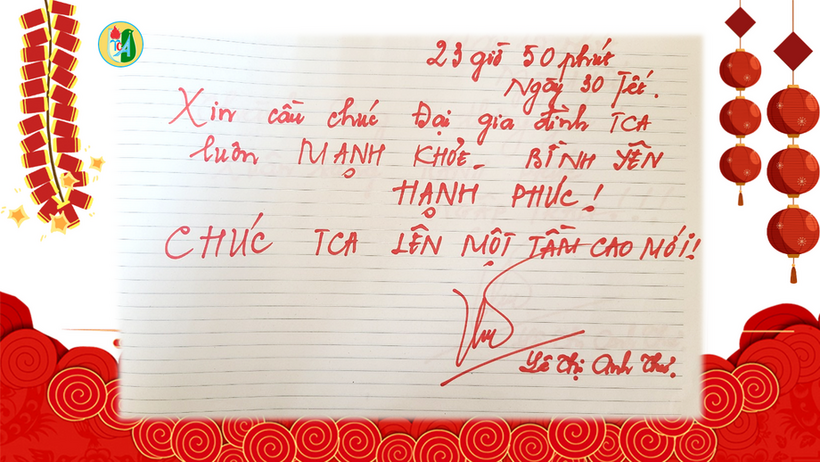 TCA
23 giờ 50 phút
Ngày 30 Tết.
Xin cầu chúc Đại gia đình TCA
luôn MẠNH KHỎE _ BÌNH YÊN
HẠNH PHÚC!
CHÚC TCA LÊN MỘT TẦM CAO MỚI!
Thư
Lê Thị Anh Thư.